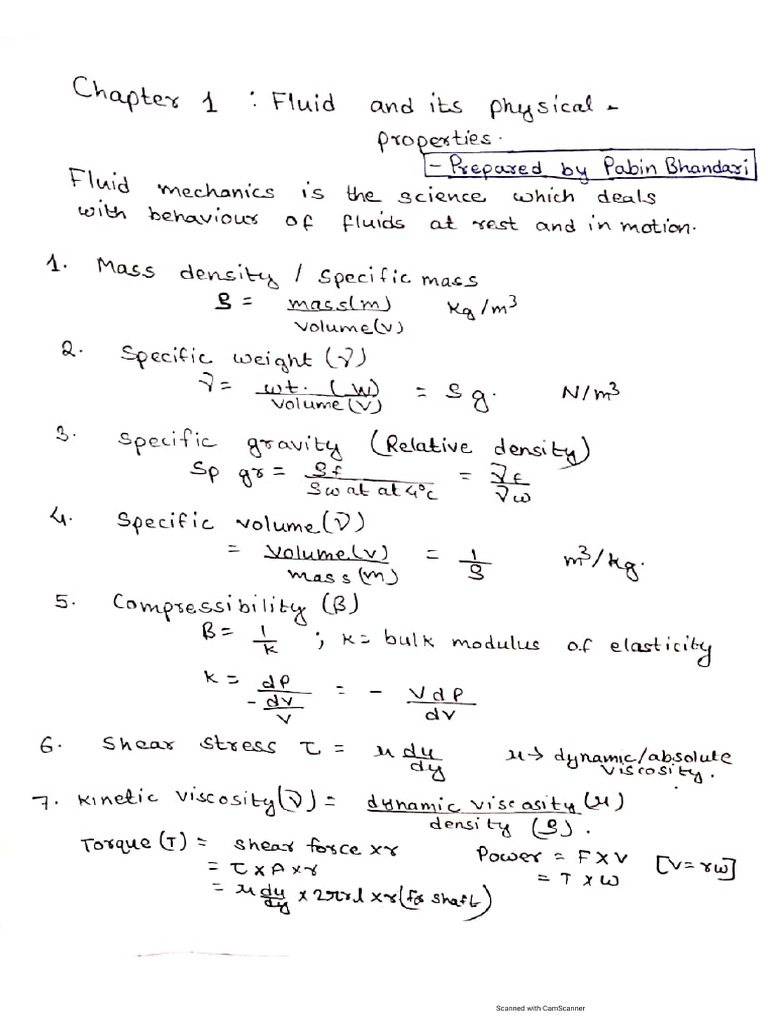 Chapter 1 : Fluid and its physical -
properties.
- Prepared by Pabin Bhandari
Fluid mechanics is the science which deals
with behaviour of fluids at rest and in motion.
1. Mass density / specific mass
ρ = mass(m) / volume(v) kg/m³
2. Specific weight (γ)
γ = wt. (W) / volume(V) = ρg. N/m³
3. Specific gravity (Relative density)
Sp gr = ρf / ρw at at 4°c = γf / γw
4. Specific volume(ν)
= volume(v) / mass(m) = 1/ρ m³/kg.
5. Compressibility (β)
β = 1/k ; k = bulk modulus of elasticity
k = dP / (-dv/v) = - VdP / dv
6. Shear stress τ = μ du/dy μ → dynamic/absolute
viscosity.
7. Kinetic viscosity(ν) = dynamic viscosity(μ) / density (ρ).
Torque (T) = shear force × r Power = F × V [V = rω]
= τ × A × r = T × ω
= μ du/dy × 2πrl × r (for shaft)
Scanned with CamScanner